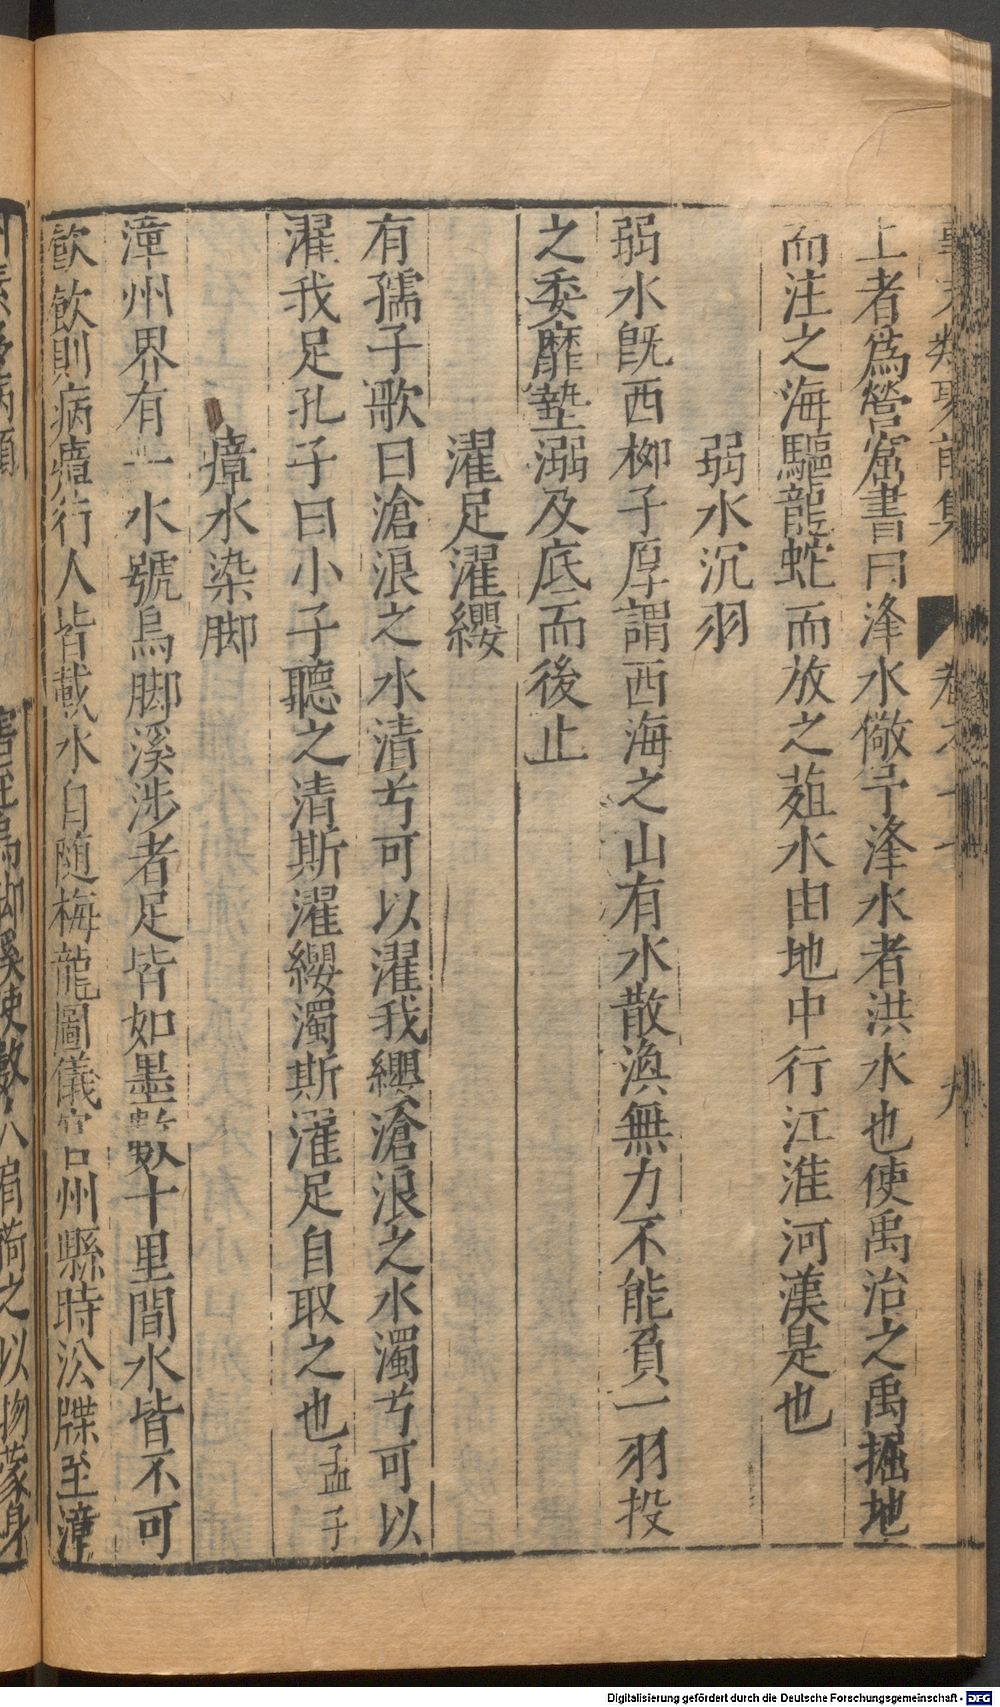 事文類聚前集
卷之十七
九
上者為營窟書曰洚水儆予洚水者洪水也使禹治之禹掘地
而注之海驅龍蛇而放之菹水由地中行江淮河漢是也
弱水沉羽
弱水旣西柳子厚謂西海之山有水散渙無力不能負一羽投
之委靡墊溺及底而後止
濯足濯纓
有孺子歌曰滄浪之水清兮可以濯我纓滄浪之水濁兮可以
濯我足孔子曰小子聽之清斯濯纓濁斯濯足自取之也孟子
瘴水染脚
漳州界有一水號烏脚溪涉者足皆如墨數十里間水皆不可
飲飲則病瘴行人皆載水自随梅龍圖儀官州縣時沿牒至漳
Digitalisierung gefördert durch die Deutsche Forschungsgemeinschaft - DFG